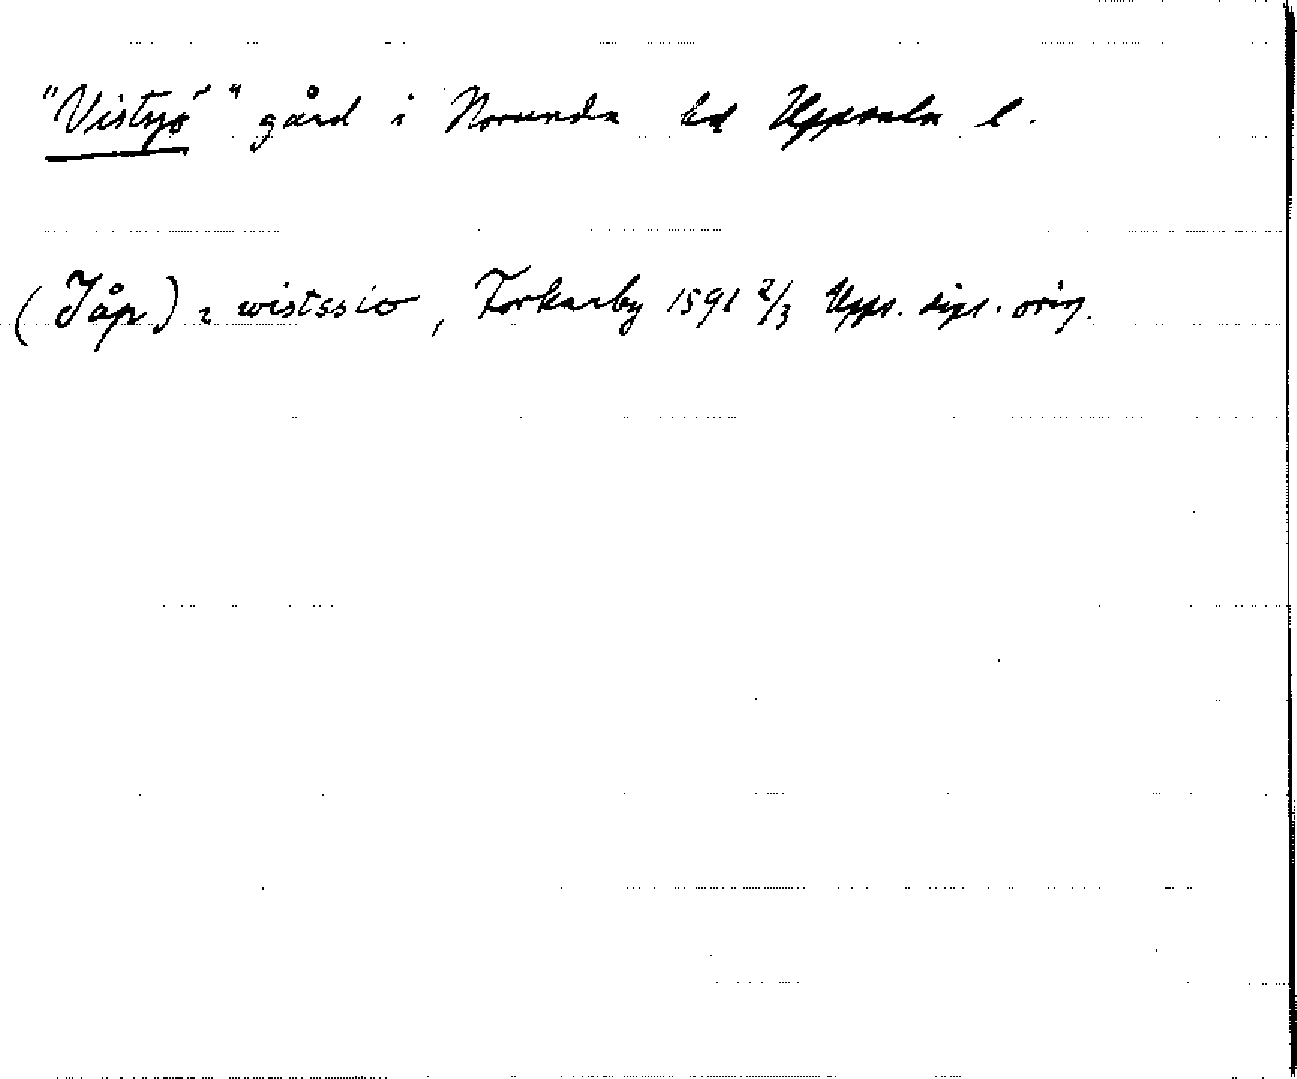 "Vistsjö" gård i Norunda hd Uppsala l.
(Jåp) i wistssio, Torkarby 1591 2/3 Upps. dipl. orig.